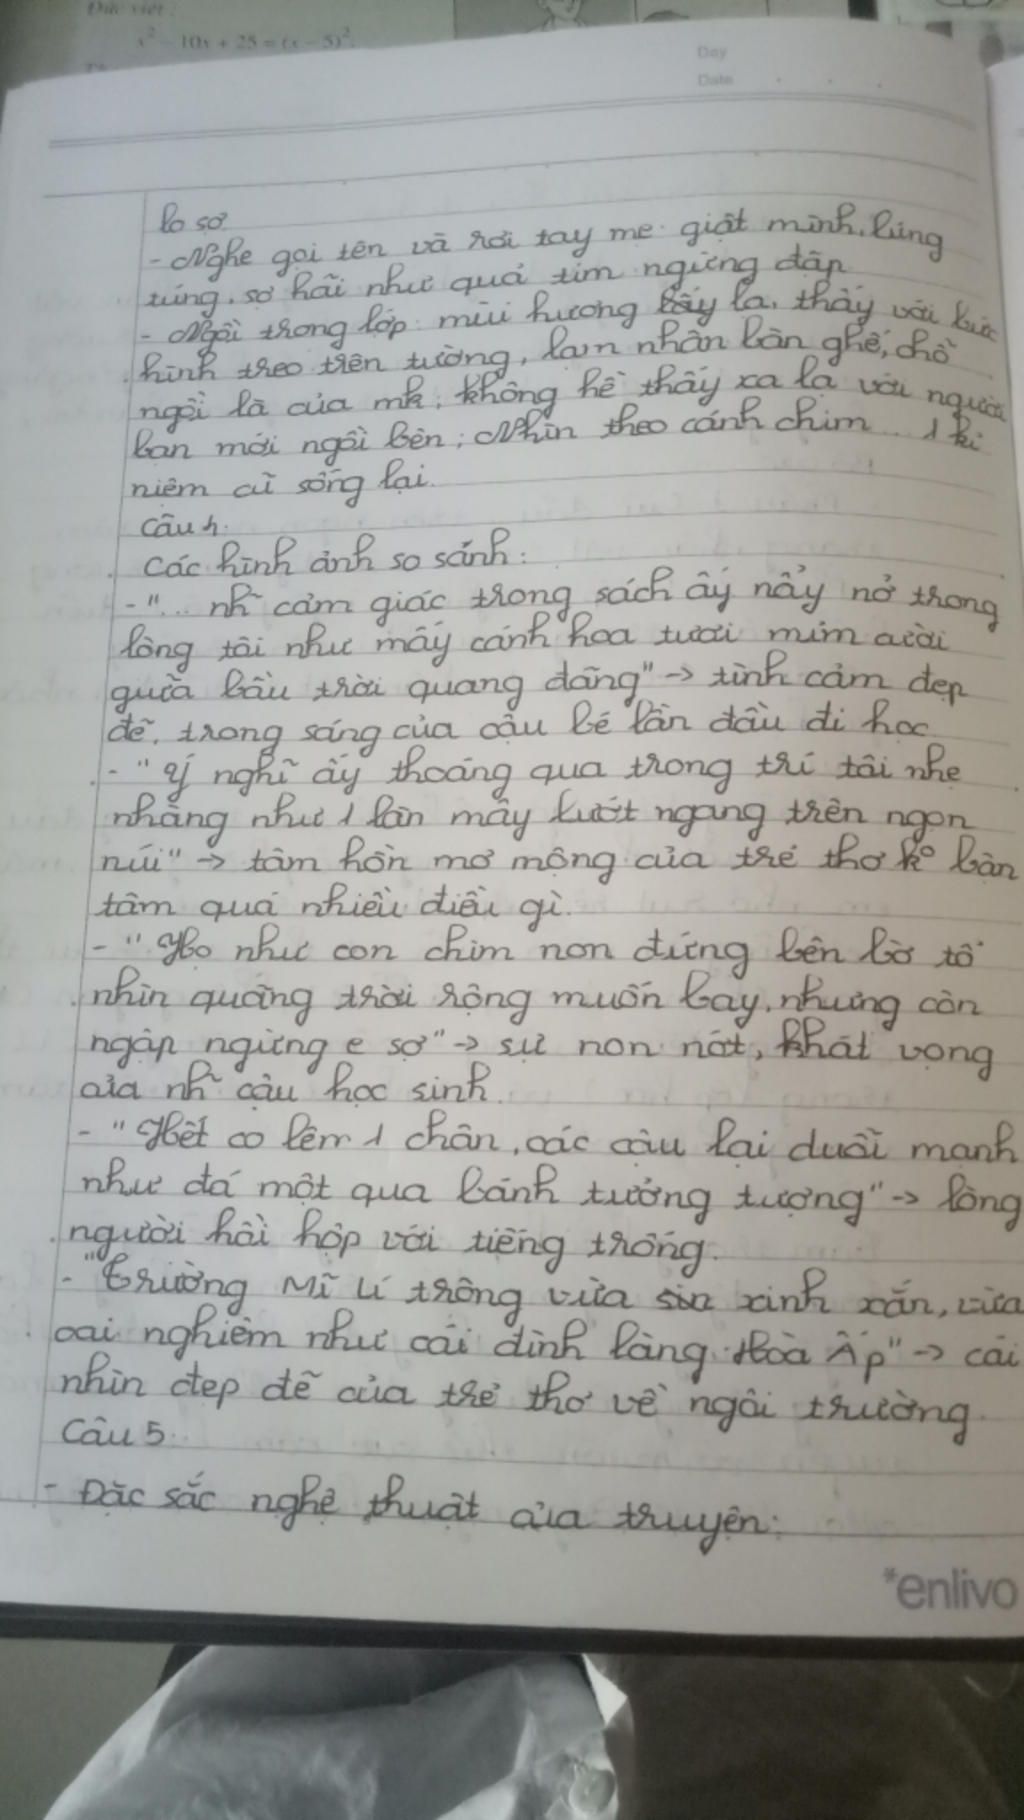 Đức viết:
x² − 10x + 25 = (x − 5)².
Day
Date
lo sợ.
- Nghe gọi tên và rời tay mẹ: giật mình, lúng
túng, sợ hãi như quả tim ngừng đập
- Ngồi trong lớp: mùi hương lạ, thấy với bức
hình treo trên tường, lạm nhận bàn ghế, chỗ
ngồi là của mk, không hề thấy xa lạ với người
bạn mới ngồi bên; Nhìn theo cánh chim... 1 kỉ
niệm cũ sống lại.
Câu 4:
Các hình ảnh so sánh:
- "... nh~ cảm giác trong sách ấy nẩy nở trong
lòng tôi như mấy cánh hoa tươi mỉm cười
giữa bầu trời quang đãng" -> tình cảm đẹp
đẽ, trong sáng của cậu bé lần đầu đi học.
- "Ý nghĩ ấy thoáng qua trong trí tôi nhẹ
nhàng như 1 làn mây lướt ngang trên ngọn
núi" -> tâm hồn mơ mộng của trẻ thơ k° bận
tâm quá nhiều điều gì.
- "Họ như con chim non đứng bên bờ tổ
nhìn quãng trời rộng muốn bay, nhưng còn
ngập ngừng e sợ" -> sự non nớt, khát vọng
của nh~ cậu học sinh.
- "Hết co lên 1 chân, các cậu lại duỗi mạnh
như đá một quả bánh tưởng tượng" -> lòng
người hồi hộp với tiếng trống.
- "trường Mĩ Lí trông vừa xinh xắn, vừa
oai nghiêm như cái đình làng Hòa Ấp" -> cái
nhìn đẹp đẽ của trẻ thơ về ngôi trường.
Câu 5:
- Đặc sắc nghệ thuật của truyện:
*enlivo